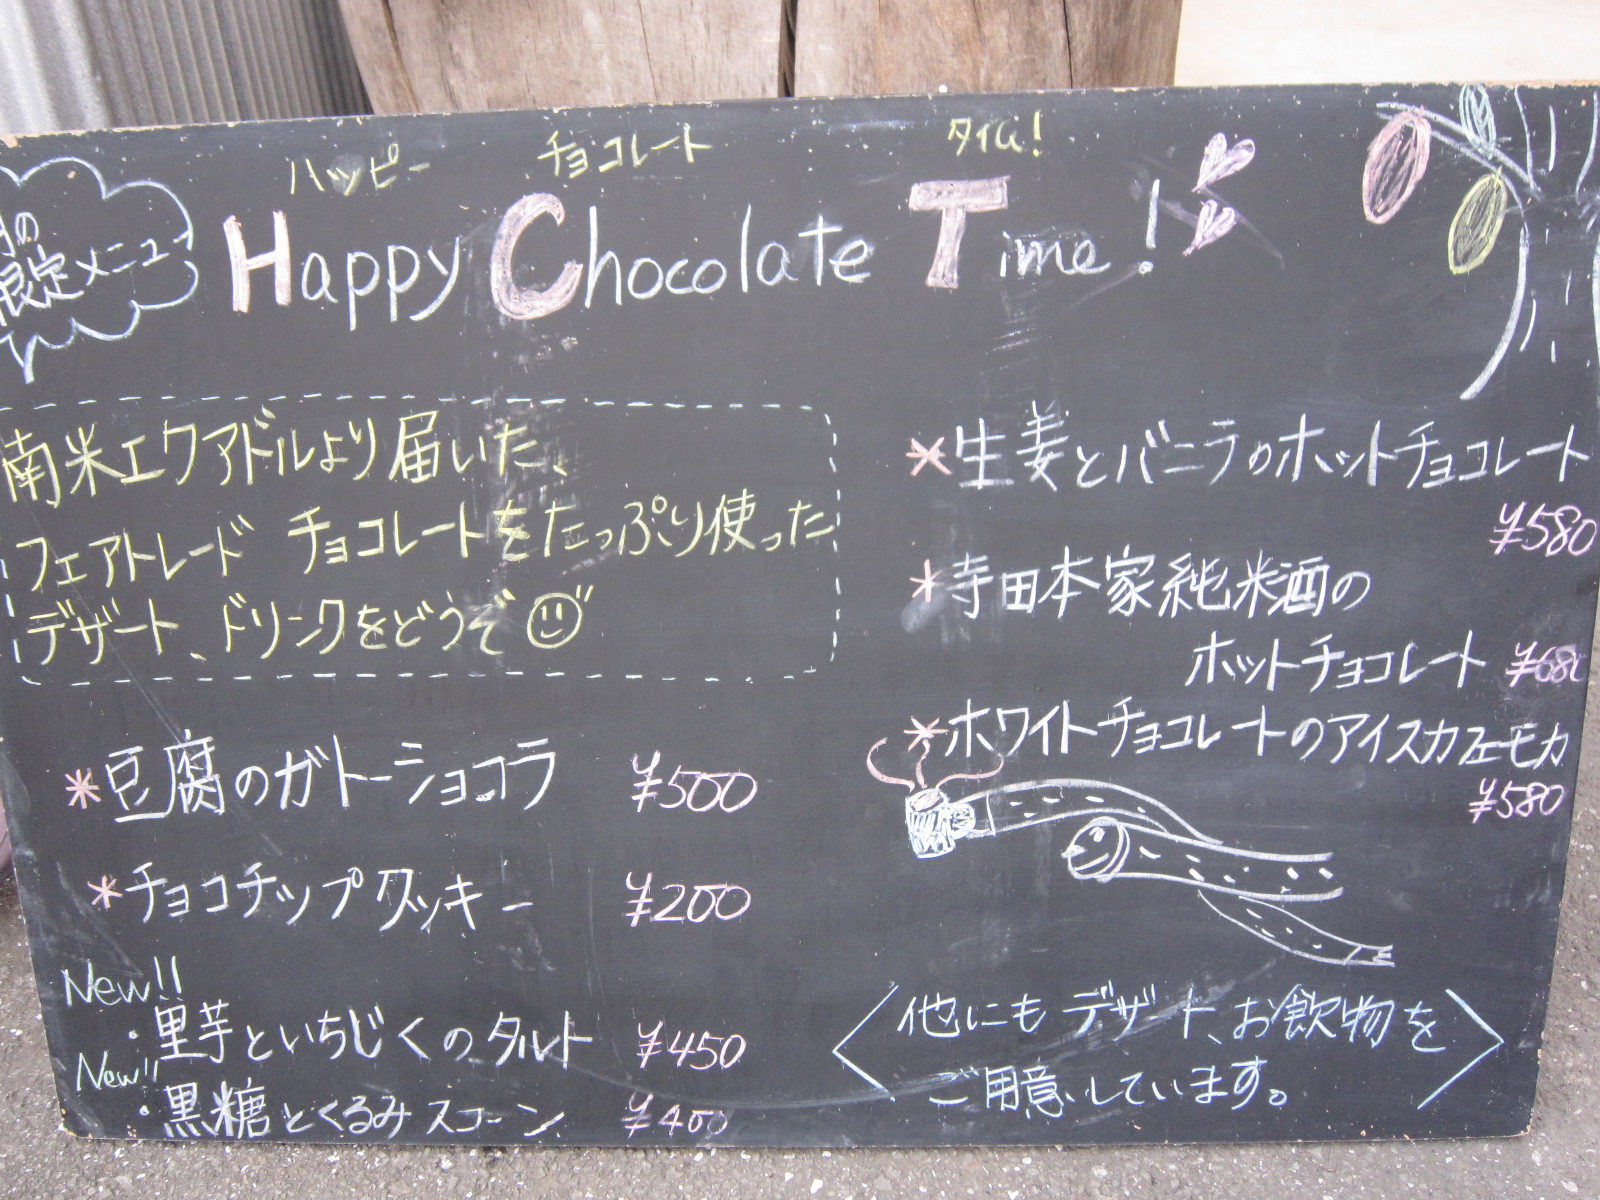 ハッピー チョコレート タイム!
Happy Chocolate Time!
の
限定メニュー
南米エクアドルより届いた、
フェアトレード チョコレートをたっぷり使った
デザート、ドリンクをどうぞ
*豆腐のガトーショコラ ¥500
*チョコチップクッキー ¥200
New!!
・里芋といちじくのタルト ¥450
New!!
・黒糖とくるみスコーン ¥400
*生姜とバニラのホットチョコレート
¥580
*寺田本家純米酒の
ホットチョコレート ¥680
*ホワイトチョコレートのアイスカフェモカ
¥580
他にもデザート、お飲物を
ご用意しています。